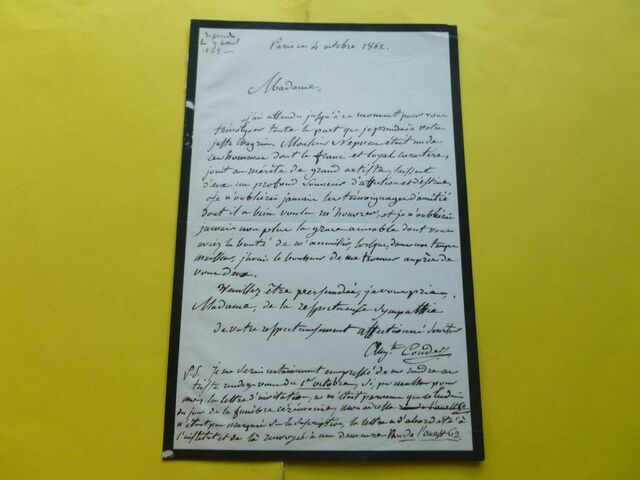 répondu
le 9 avril
1863
Paris ce 4 octobre 1862.
Madame,
j'ai attendu jusqu'à ce moment pour vous
témoigner toute la part que je prends à votre
juste chagrin. Monsieur était un de
ces hommes dont le franc et loyal caractère,
joint au mérite de grand artiste, laissent
d'eux un profond souvenir d'affection et d'estime,
je n'oublierai jamais les témoignages d'amitié
dont il a bien voulu m'honorer, et je n'oublierai
jamais non plus la grace aimable dont vous
aviez la bonté de m'accueillir, lorsque, dans un temps
meilleur, j'avais le bonheur de me trouver auprès de
vous deux.
Veuillez être persuadée, je vous prie,
Madame, de la respectueuse sympathie
de votre respectueusement affectionné serviteur
Aug.te Couder
P.S. je me serais certainement empressé de me rendre au
triste rendez-vous du 1er octobre, si, par malheur pour
moi, la lettre d'invitation, ne m'était parvenue que le lendemain
du jour de la funèbre cérémonie, mon adresse de l'ouest 62
n'étant pas marquée sur la suscription, la lettre a d'abord été à
l'institut et de là renvoyée à ma demeure Rue de l'ouest 62